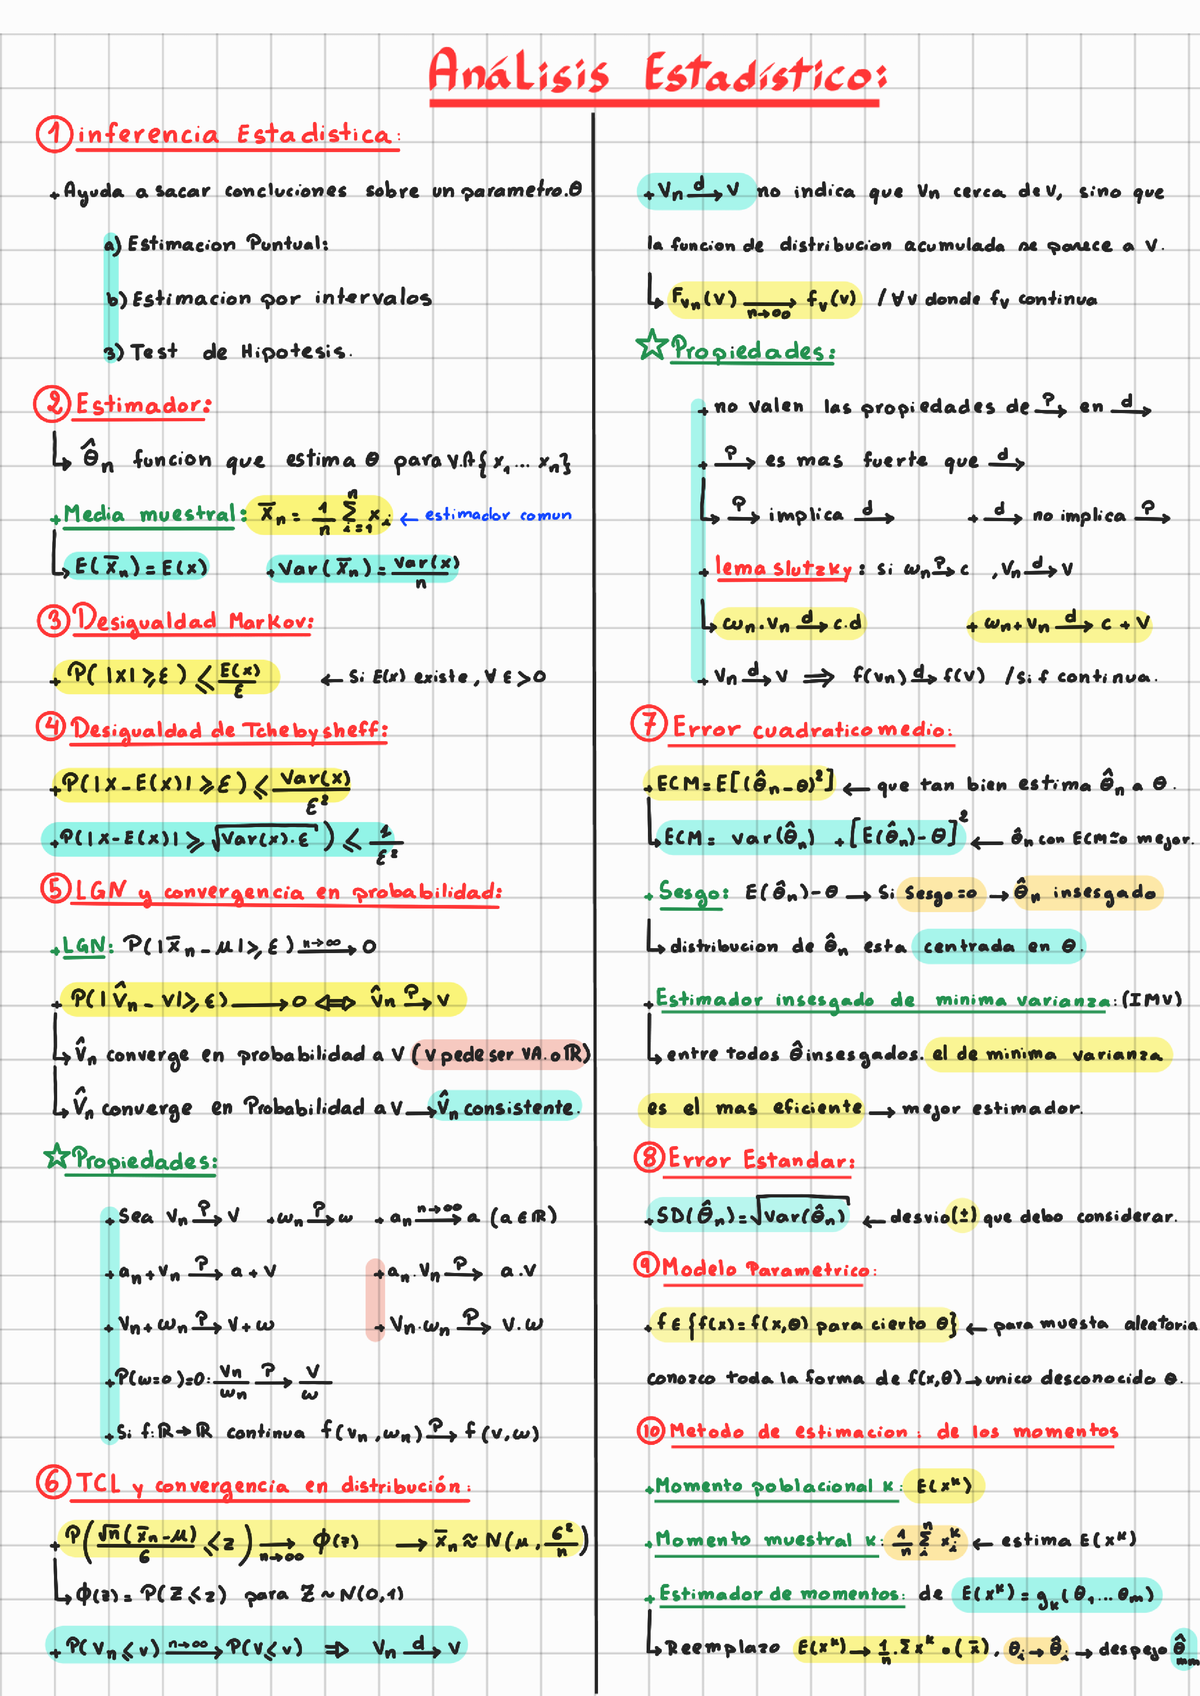 Análisis Estadístico:
① inferencia Estadistica:
+ Ayuda a sacar concluciones sobre un parametro.θ
a) Estimacion Puntual:
b) Estimacion por intervalos
3) Test de Hipotesis.
② Estimador:
↳ θ̂n funcion que estima θ para V.A{x₁...xn}
+ Media muestral: X̄n = 1/n Σ_{i=1}^{n} xi ← estimador comun
↳ E(X̄n) = E(x) + Var(X̄n) = Var(x)/n
③ Desigualdad Markov:
+ P(|x| ≥ ε) ≤ E(x)/ε ← Si E(x) existe, ∀ε>0
④ Desigualdad de Tchebysheff:
+ P(|X-E(x)| ≥ ε) ≤ Var(x)/ε²
+ P(|X-E(x)| ≥ √(Var(x)·ε)) ≤ 1/ε²
⑤ LGN y convergencia en probabilidad:
+ LGN: P(|X̄n - μ| ≥ ε) —n→∞→ 0
+ P(|V̂n - V| ≥ ε) → 0 ⟺ V̂n —P→ V
↳ V̂n converge en probabilidad a V (V pede ser VA. o ℝ)
↳ V̂n converge en Probabilidad a V → V̂n consistente.
☆ Propiedades:
+ Sea Vn —P→ V + ωn —P→ ω + an —n→∞→ a (a ∈ ℝ)
+ an + Vn —P→ a + V + an · Vn —P→ a.V
+ Vn + ωn —P→ V + ω + Vn · ωn —P→ V.ω
+ P(ω=0)=0: Vn/ωn —P→ V/ω
+ Si f: ℝ → ℝ continua f(Vn, ωn) —P→ f(V,ω)
⑥ TCL y convergencia en distribución:
+ P(√n(X̄n-μ)/6 ≤ z) —n→∞→ ϕ(z) → X̄n ≈ N(μ, 6²/n)
↳ ϕ(z) = P(Z ≤ z) para Z ~ N(0,1)
+ P(Vn ≤ v) —n→∞→ P(V ≤ v) ⇒ Vn —d→ V
+ Vn —d→ V no indica que Vn cerca de V, sino que
la funcion de distribucion acumulada se parece a V.
↳ F_{Vn}(V) —n→∞→ f_V(v) / ∀v donde f_V continua
☆ Propiedades:
+ no valen las propiedades de —P→ en —d→
+ —P→ es mas fuerte que —d→
↳ —P→ implica —d→ + —d→ no implica —P→
+ lema slutzky: si ωn —P→ c , Vn —d→ V
↳ ωn · Vn —d→ c.d + ωn + Vn —d→ c + V
+ Vn —d→ V ⟹ f(Vn) —d→ f(V) / Si f continua.
⑦ Error cuadratico medio:
+ ECM = E[(θ̂n - θ)²] ← que tan bien estima θ̂n a θ.
↳ ECM = var(θ̂n) + [E(θ̂n) - θ]² ← θ̂n con ECM≃0 mejor.
+ Sesgo: E(θ̂n) - θ → Si Sesgo = 0 → θ̂n insesgado
↳ distribucion de θ̂n esta centrada en θ.
+ Estimador insesgado de minima varianza: (IMV)
↳ entre todos θ̂ insesgados. el de minima varianza
es el mas eficiente → mejor estimador.
⑧ Error Estandar:
+ SD(θ̂n) = √Var(θ̂n) ← desvio (±) que debo considerar.
⑨ Modelo Parametrico:
+ f ∈ {f(x) = f(x,θ) para cierto θ} ← para muesta aleatoria
conozco toda la forma de f(x,θ) → unico desconocido θ.
⑩ Metodo de estimacion: de los momentos
+ Momento poblacional K: E(x^k)
+ Momento muestral K: 1/n Σ_i^n xi^k ← estima E(x^k)
+ Estimador de momentos: de E(x^k) = g_k(θ₁...θm)
↳ Reemplazo E(x^k) → 1/n · Σx^k o (x̄), θi → θ̂i → despejo θ̂mm